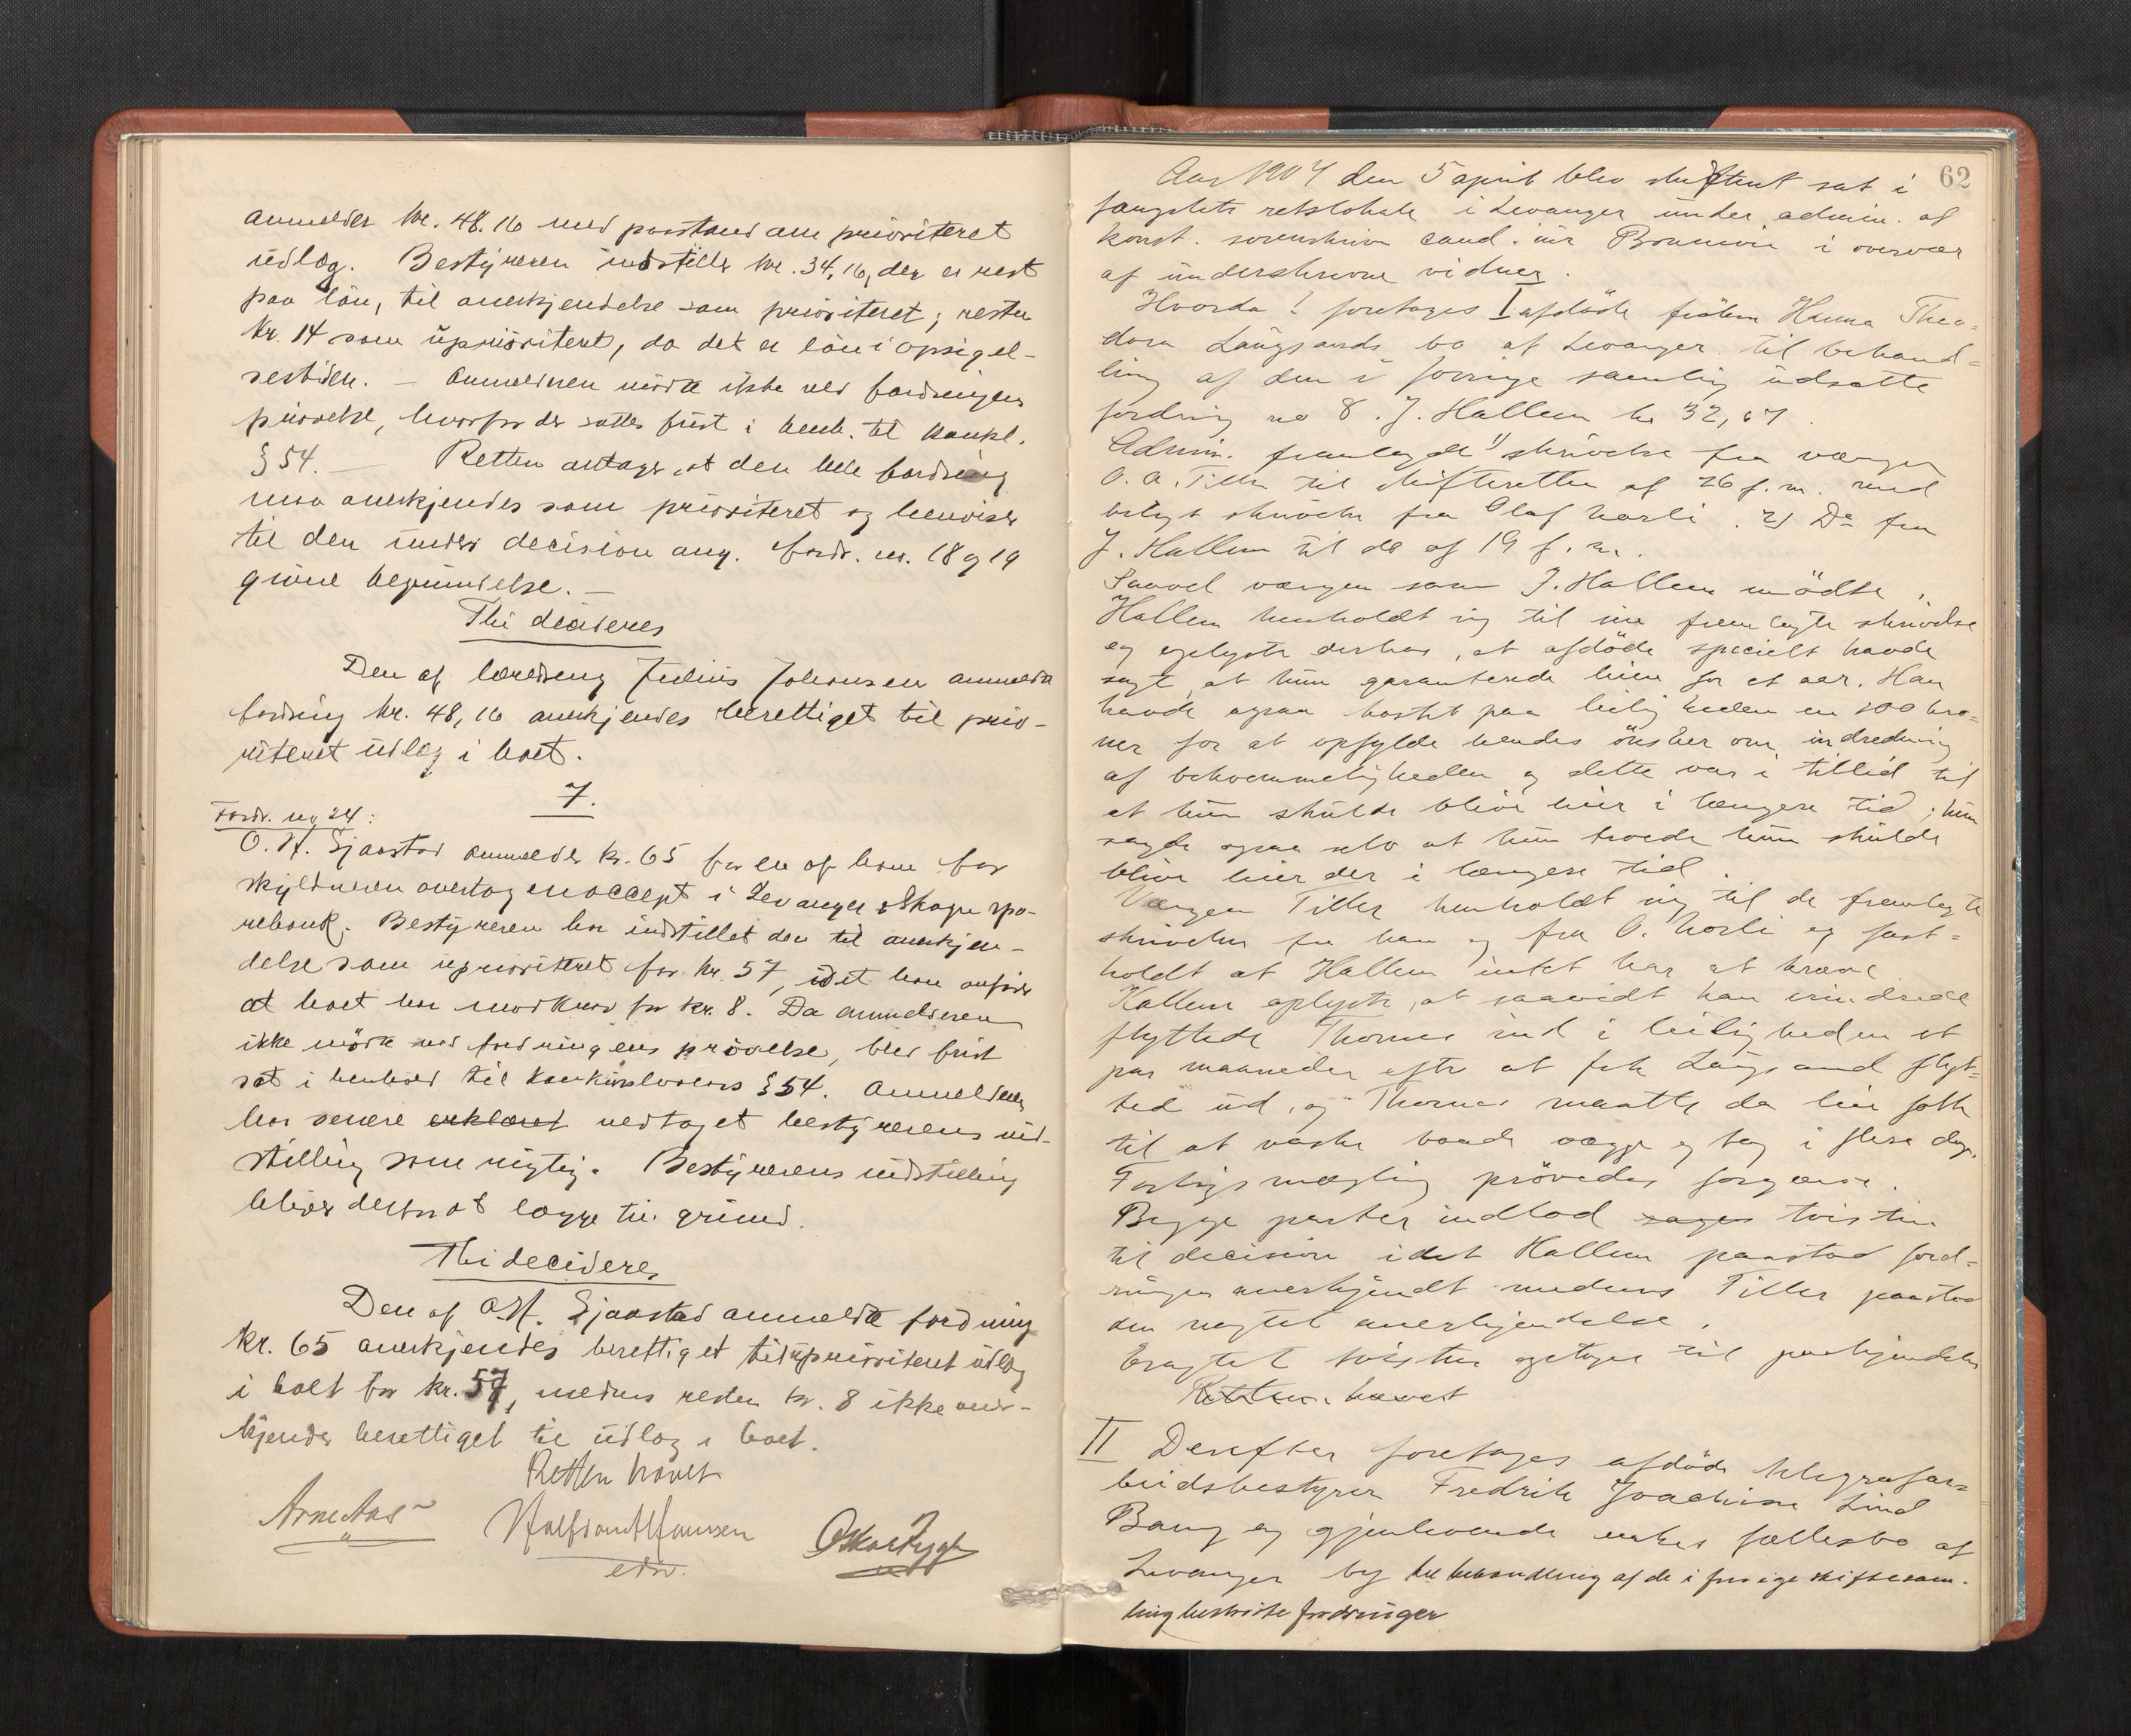 anmelder kr. 48.16 med paastand om prioriteret
udlæg. Bestyreren indstiller kr. 34,16, der er rest
paa løn, til anerkjendelse som prioriteret; resten
kr. 14 som uprioriteret, da det er løn i opsigel-
sestiden. – Anmelderen mødte ikke ved fordringens
prøvelse, hvorfor der sattes frist i henh. til konksl.
§ 54. – Retten antager, at den hele fordring
maa anerkjendes som prioriteret og henviser
til den under decision ang. fordr. no. 18 og 19
givne begrundelse. –
Thi decideres
Den af læredreng Julius Johansen anmeldte
fordring kr. 48,16 anerkjendes berettiget til prio-
riteret udlæg i boet.
7.
Fordr. no 24:
O. H. Sjaastad anmelder kr. 65 for en af ham for
skyldneren overtagen accept i Levanger & Skogn spa-
rebank. Bestyreren har indstillet den til anerkjen-
delse som uprioriteret for kr. 57, idet han anfører
at boet har modkrav for kr. 8. Da anmelderen
ikke mødte ved fordringens prøvelse, blev frist
sat i henhold til konkurslovens § 54. Anmelderen
har senere erklæret vedtaget bestyrerens ind-
stilling som rigtig. Bestyrerens indstilling
bliver derfor at lægge til grund.
Thi decideres
Den af O. H. Sjaastad anmeldte fordring
kr. 65 anerkjendes berettiget til uprioriteret udlæg
i boet for kr. 57, medens resten kr. 8 ikke aner-
kjendes berettiget til udlæg i boet.
Retten hævet
Arne Aas Halfdan Hansen Oskar Rygh
edsv.
62
Aar 1904 den 5 april blev skifteret sat i
fængslets retslokale i Levanger under admin. af
konst. sorenskriver cand. jur in i overvær
af underskrevne vidner.
Hvorda! foretages I afdøde frøken Hanna Theo-
dora Langsands bo af Levanger til behand-
ling af den i forrige samling udsatte
fordring no 8. J. Hallem kr 32,67.
Admin. fremlagde 1) skrivelse fra værgen
O. A. Tiller til skifteretten af 26 f. m. med
bilagt skrivelse fra Olaf Norli. 2) Do fra
J. Hallem til do af 19 f. m.
Saavel værgen som J. Hallem mødte.
Hallem henholdt sig til sin fremlagte skrivelse
og oplyste derhos, at afdøde specielt havde
sagt, at hun garanterede leien for et aar. Han
havde ogsaa kostet paa leiligheden en 100 kro-
ner for at opfylde hendes ønsker om indredning
af bekvemmeligheden og dette var i tillid til
at hun skulde blive leier i længere tid; hun
sagde ogsaa selv at hun troede hun skulde
blive leier der i længere tid.
Værgen Tiller henholdt sig til de fremlagte
skrivelser fra ham og fra O. Norli og fast-
holdt at Hallem intet har at kræve.
Hallem oplyste, at saavidt han erindrede
flyttede Thornes ind i leiligheden et
par maaneder efter at frk Langsand flyt-
ted ud, og Thornes maatte da leie folk
til at vaske baade vægge og tag i flere dage.
Forligsmægling prøvedes forgjæves.
Begge parter indlod sagen tvisten
til decision idet Hallem paastod ford-
ringen anerkjendt medens Tiller paastod
den nægtet anerkjendelse.
Eragtet tvisten optages til paakjendelse
Retten hævet
II Derefter foretages afdøde telegrafar-
beidsbestyrer Fredrik Joachim Lind
Bang og gjenlevende enkes fællesbo af
Levanger by til behandling af de i forrige skiftesam-
ling bestridte fordringer